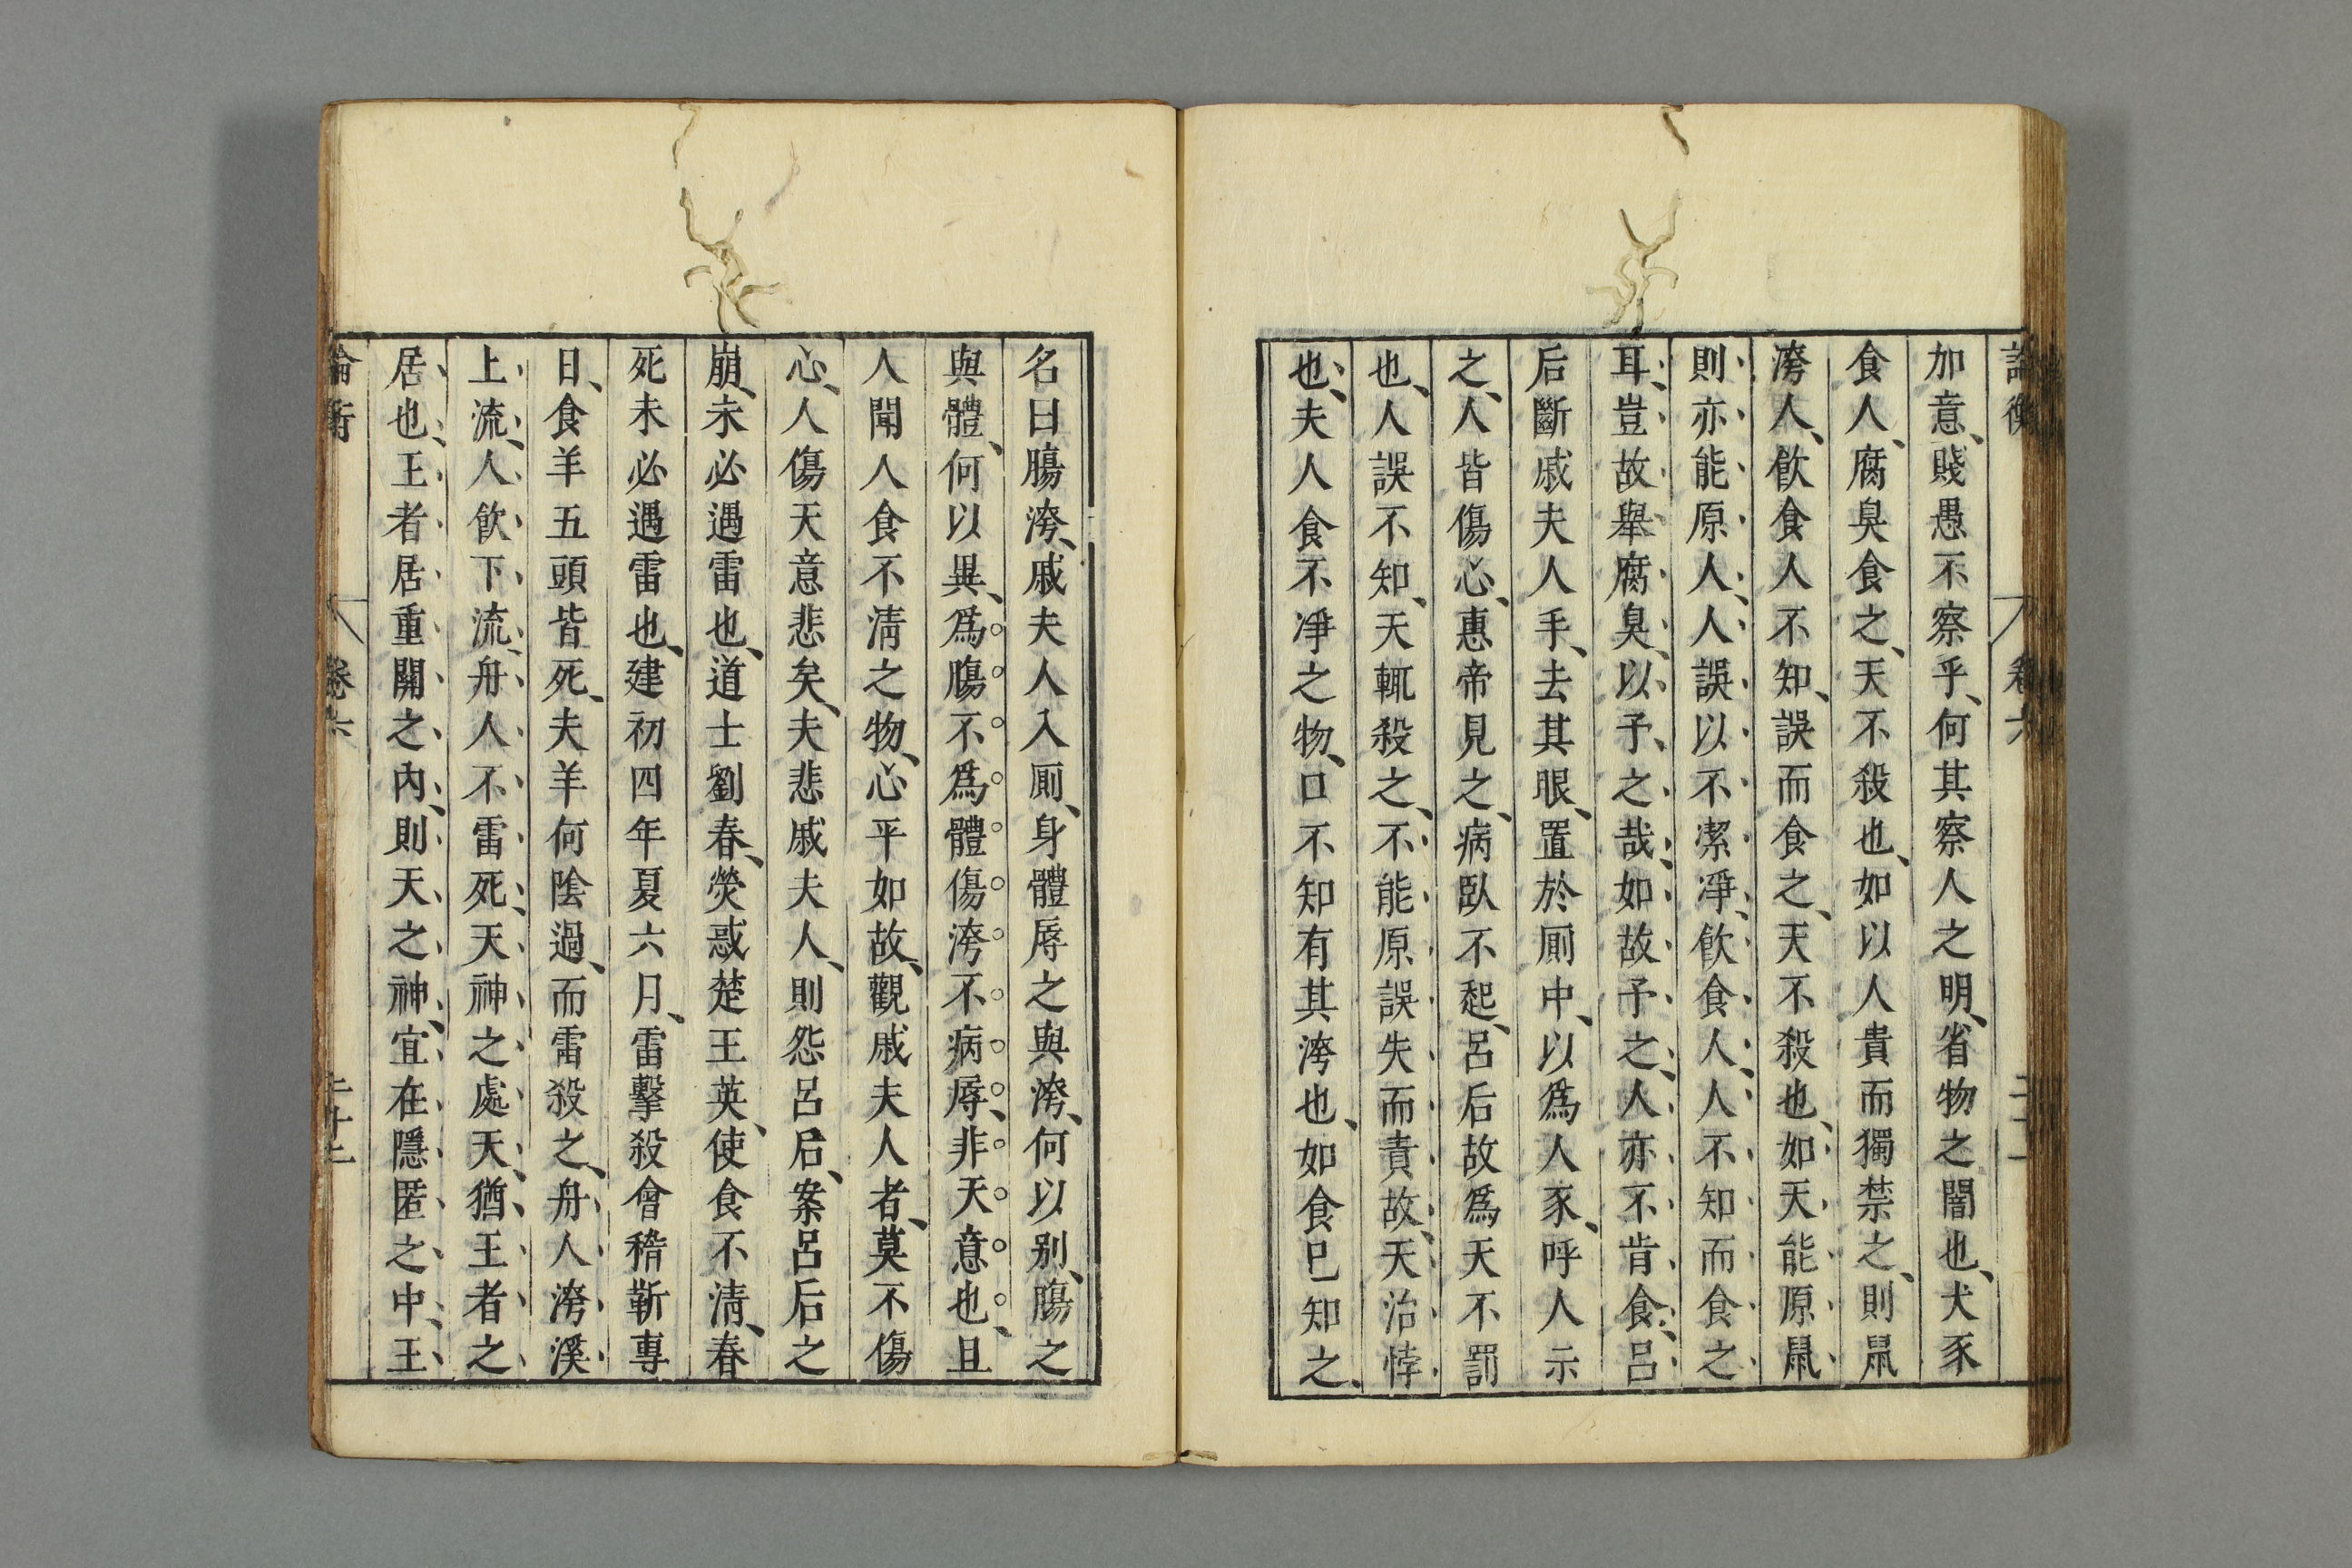 論衡 卷六
加意、賤愚不察乎、何其察人之明、省物之闇也、犬豕
食人、腐臭食之、天不殺也、如以人貴而獨禁之、則鼠
洿人、飲食人不知、誤而食之、天不殺也、如天能原鼠
則亦能原人、人誤以不潔凈、飲食人、人不知而食之
耳、豈故舉腐臭、以予、之哉、如故予之、人亦不肯食、呂
后斷戚夫人手、去其眼、置於厠中、以爲人豕、呼人示
之、人皆傷心、惠帝見之、病臥不起、呂后故爲天不罰
也、人誤不知、天輒殺之、不能原誤失而責故、天治悖
也、夫人食不凈之物、口不知有其洿也、如食已知之、
名曰膓洿、戚夫人入厠、身體辱之與洿、何以别、膓之
與體、何以異、爲膓不爲體傷洿不病辱、非天意也、且
人聞人食不清之物、心平如故、觀戚夫人者、莫不傷
心、人傷天意悲矣、夫悲戚夫人、則怨呂后、案呂后之
崩、未必遇雷也、道士劉春、熒惑楚王英、使食不清、春
死未必遇雷也、建初四年夏六月、雷擊殺會稽靳專
日、食羊五頭皆死、夫羊何陰過、而雷殺之、舟人洿溪
上流、人飲下流、舟人不雷死、天神之處天、猶王者之
居也、王者居重關之内、則天之神、宜在隱匿之中、王
論衡 卷六